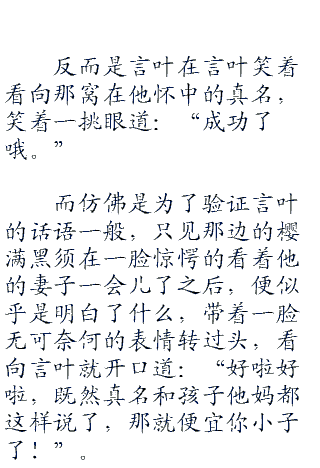 反而是言叶在言叶笑着
看向那窝在他怀中的真名，
笑着一挑眼道：“成功了
哦。”
而仿佛是为了验证言叶
的话语一般，只见那边的樱
满黑须在一脸惊愕的看着他
的妻子一会儿了之后，便似
乎是明白了什么，带着一脸
无可奈何的表情转过头，看
向言叶就开口道：“好啦好
啦，既然真名和孩子他妈都
这样说了，那就便宜你小子
了！”。